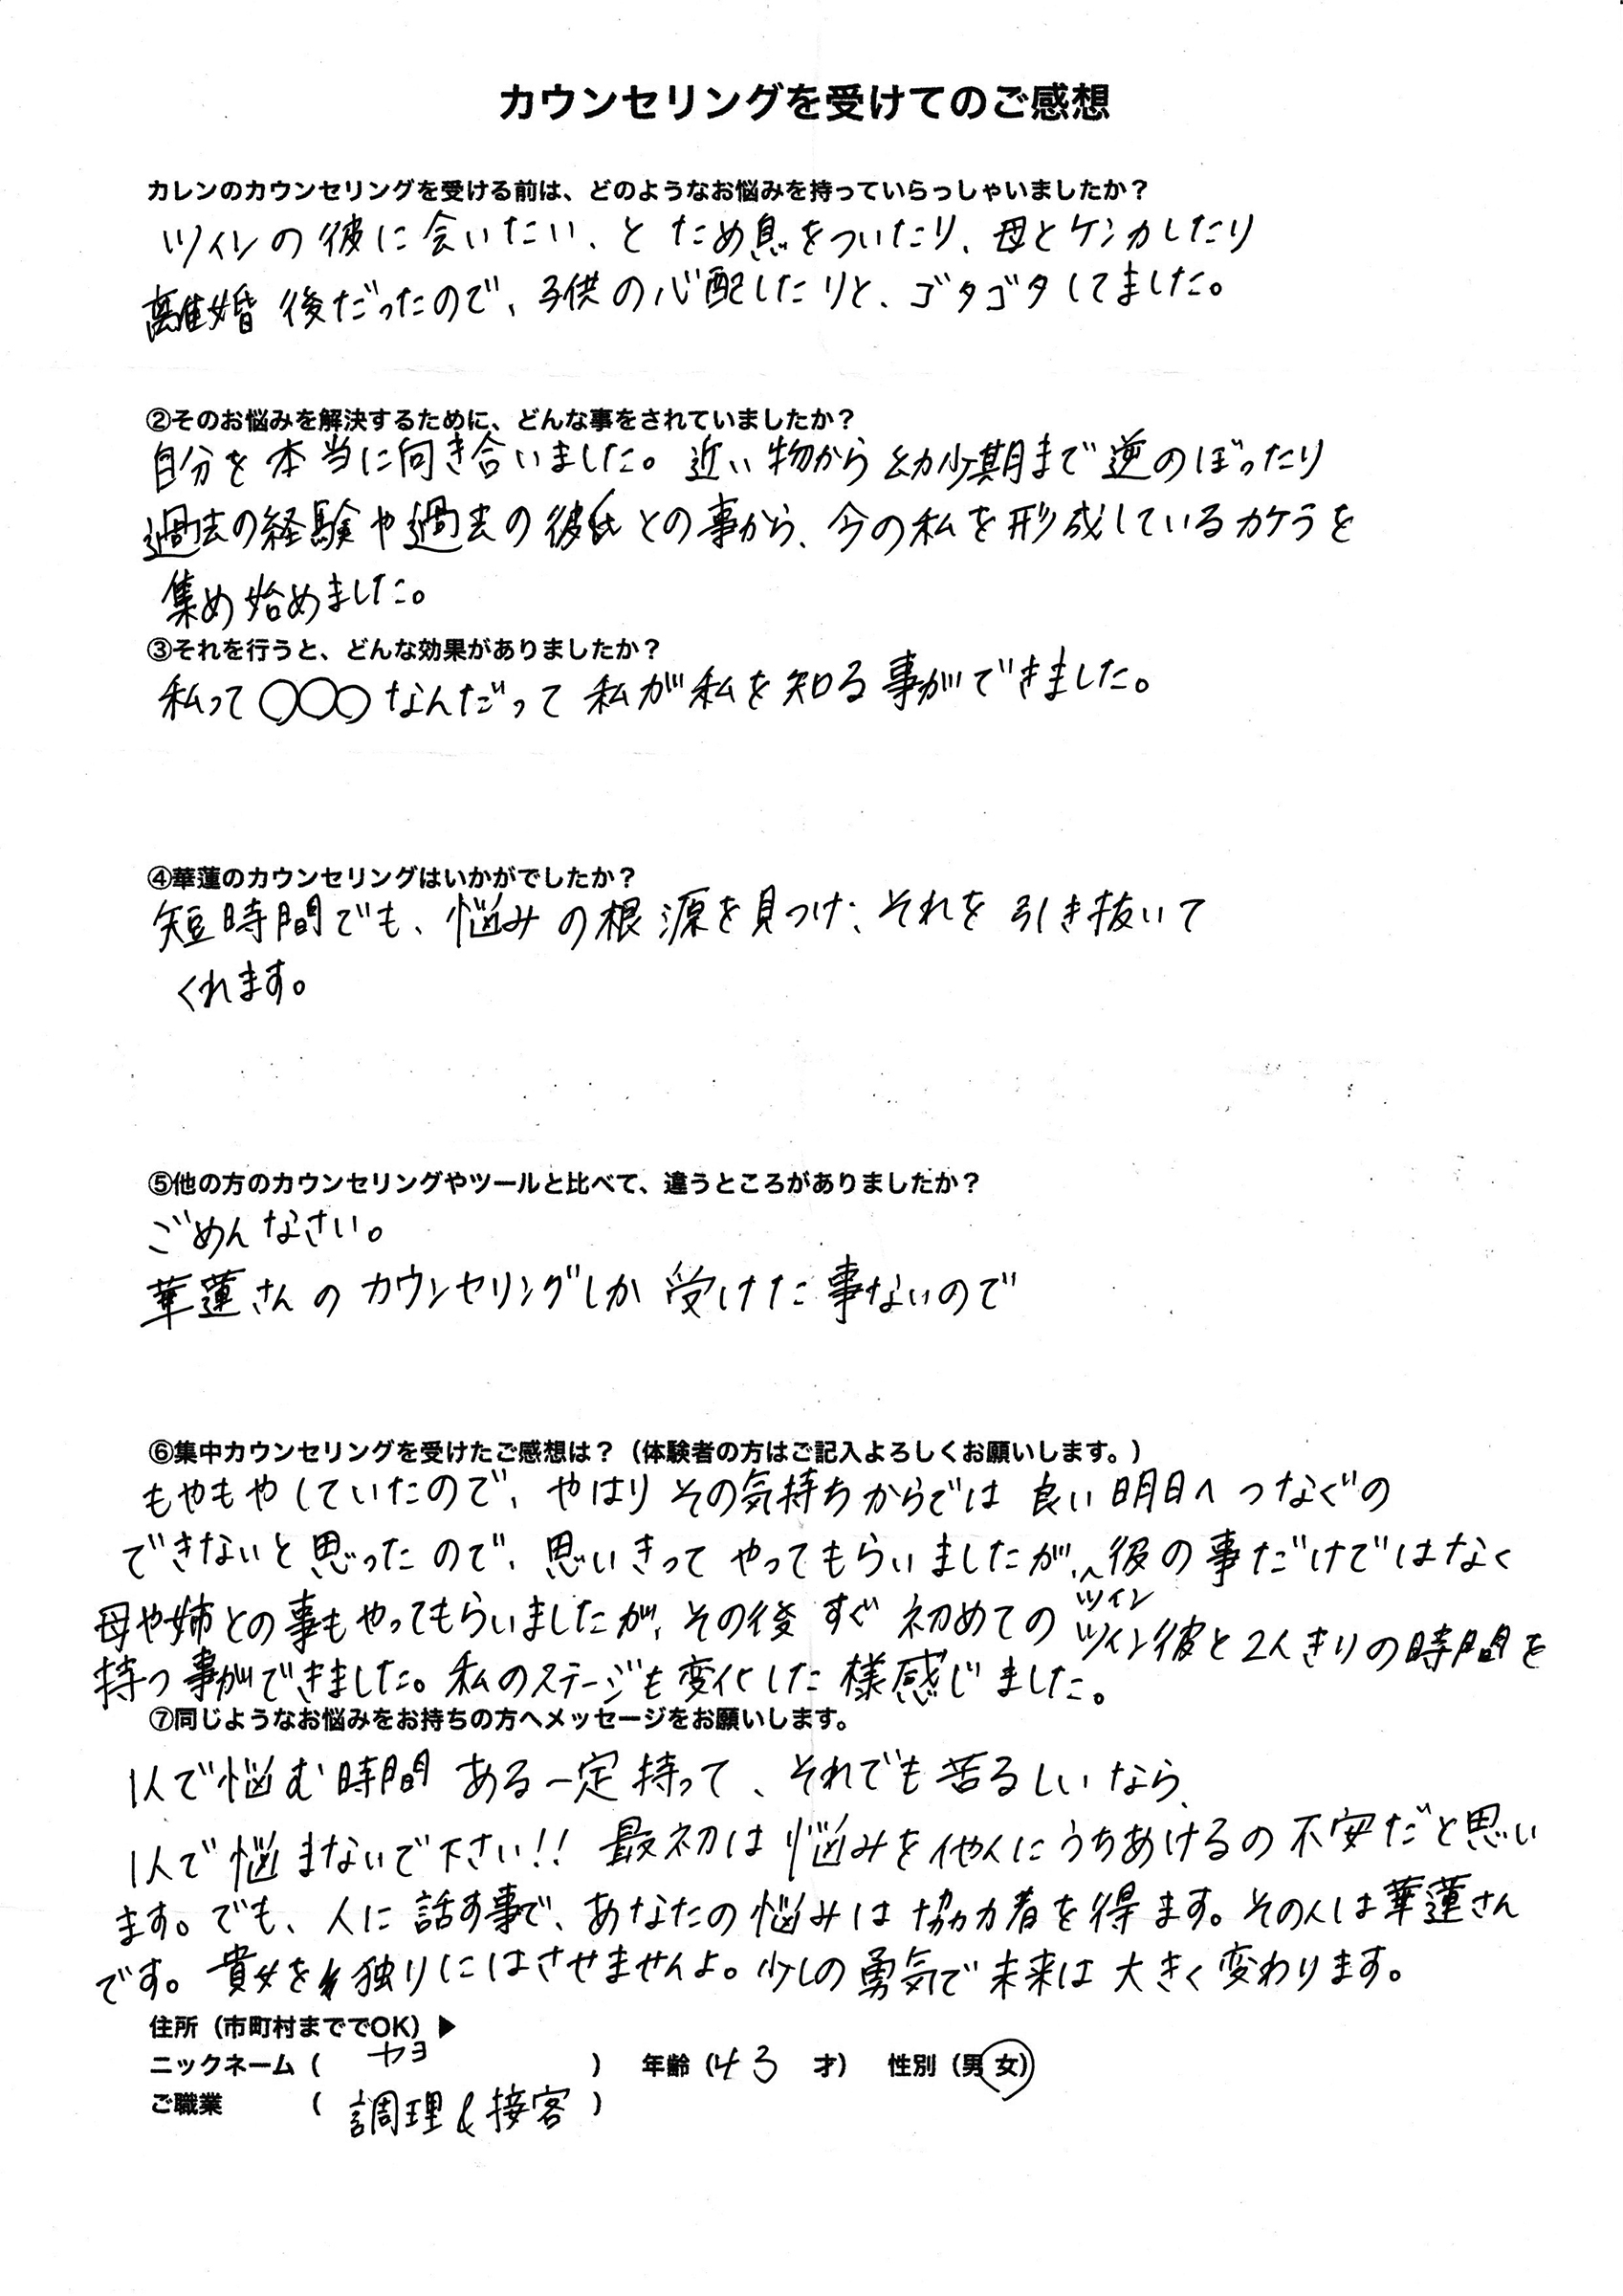 カウンセリングを受けてのご感想
カレンのカウンセリングを受ける前は、どのようなお悩みを持っていらっしゃいましたか？
ツインの彼に会いたい、とため息をついたり、母とケンカしたり
離婚後だったので、子供の心配したりと、ゴタゴタしてました。
②そのお悩みを解決するために、どんな事をされていましたか？
自分を本当に向き合いました。近い物から幼少期まで逆のぼったり
過去の経験や過去の彼氏との事から、今の私を形成しているカケラを
集め始めました。
③それを行うと、どんな効果がありましたか？
私って〇〇〇なんだって私が私を知る事ができました。
④華蓮のカウンセリングはいかがでしたか？
短時間でも、悩みの根源を見つけ、それを引き抜いて
くれます。
⑤他の方のカウンセリングやツールと比べて、違うところがありましたか？
ごめんなさい。
華蓮さんのカウンセリングしか受けた事ないので
⑥集中カウンセリングを受けたご感想は？（体験者の方はご記入よろしくお願いします。）
もやもやしていたので、やはりその気持ちからでは良い明日へつなぐの
できないと思ったので、思いきってやってもらいましたが、彼の事だけではなく
ツイン
母や姉との事もやってもらいましたが、その後すぐ初めてのツイン彼と2人きりの時間を
持つ事ができました。私のステージも変化した様感じました。
⑦同じようなお悩みをお持ちの方へメッセージをお願いします。
1人で悩む時間ある一定持って、それでも苦るしいなら、
1人で悩まないで下さい!! 最初は悩みを他人にうちあけるの不安だと思い
ます。でも、人に話す事で、あなたの悩みは協力者を得ます。その人は華蓮さん
です。貴女を独りにはさせませんよ。少しの勇気で未来は大きく変わります。
住所（市町村まででOK）▶
ニックネーム（ ヤヨ ） 年齢（43 才） 性別（男 女）
ご職業 （ 調理&接客 ）